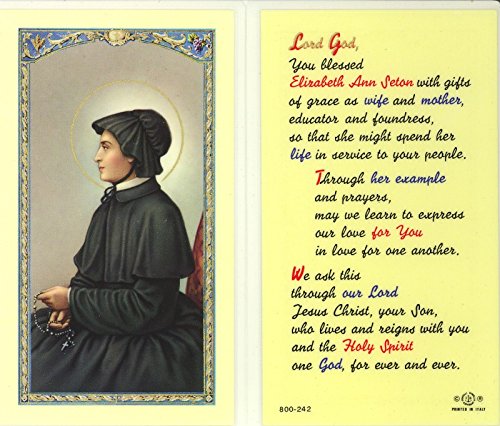 Lord God,
You blessed
Elizabeth Ann Seton with gifts
of grace as wife and mother,
educator and foundress,
so that she might spend her
life in service to your people.
Through her example
and prayers,
may we learn to express
our love for You
in love for one another.
We ask this
through our Lord
Jesus Christ, your Son,
who lives and reigns with you
and the Holy Spirit
one God, for ever and ever.
800-242
© ®
PRINTED IN ITALY